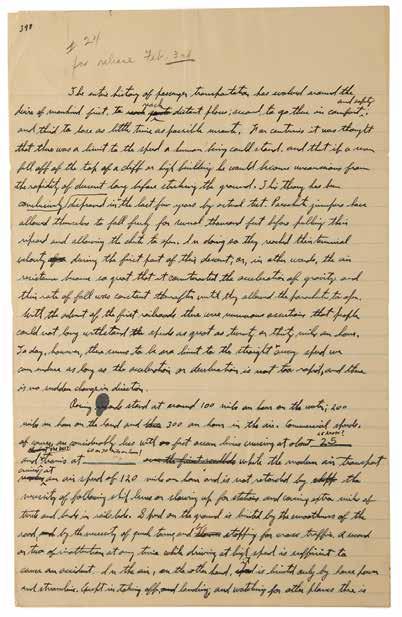 398
# 24
for release Feb. 3rd
The entire history of passenger transportation has evolved around the
desire of mankind first, to reach distant places; second, to go there in comfort,
and safety
and third to lose as little time as possible enroute. For centuries it was thought
that there was a limit to the speed a human being could stand, and that if a man
fell off of the top of a cliff or high building he would become unconscious from
the rapidity of descent long before striking the ground. This theory has been
conclusively disproved in the last few years by actual test. Parachute jumpers have
allowed themselves to fall freely for several thousand feet before pulling their
ripcord and allowing the chute to open. In doing so they reached their terminal
velocity during the first part of this descent, or, in other words, the air
resistance became so great that it counteracted the acceleration of gravity and
their rate of fall was constant thereafter until they allowed the parachute to open.
With the advent of the first railroads there were numerous assertions that people
could not long withstand the speeds as great as twenty or thirty miles an hour.
Today, however, there seems to be no limit to the straight away speed we
can endure as long as the acceleration or deceleration is not too rapid, and there
is no sudden change in direction.
Racing records stand at around 100 miles an hour on the water, 200
miles an hour on the land and 300 an hour in the air. Commercial speeds,
of course, are considerably less with fast ocean liners cruising at about 25
and trains at while the modern air transport
cruises at
an air speed of 120 miles an hour and is not retarded by the
necessity of following ship lanes or slowing up for stations and curving extra miles of
track and bends in railroads. Speed on the ground is limited by the smoothness of the
road, by the necessity of quick turns, and stopping for cross traffic. A second
or two of inattention at any time while driving at high speed is sufficient to
cause an accident. In the air, on the other hand, speed is limited only by horse power
and streamline. Except in taking off, landing, and watching for other planes there is